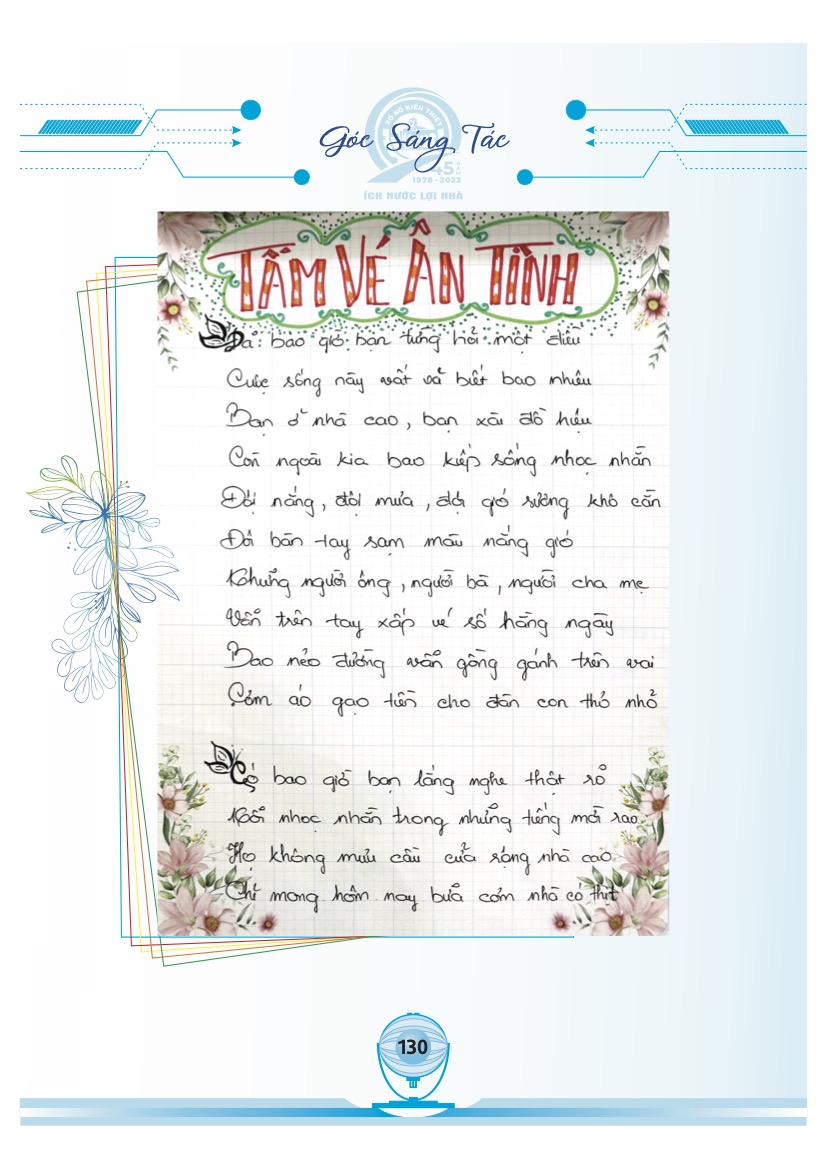 Góc Sáng Tác
XỔ SỐ KIẾN THIẾT
45 NĂM
1978 - 2023
ÍCH NƯỚC LỢI NHÀ
TẤM VÉ ÂN TÌNH
Đã bao giờ bạn từng hỏi một điều
Cuộc sống này vất vả biết bao nhiêu
Bạn ở nhà cao, bạn xài đồ hiệu
Còn ngoài kia bao kiếp sống nhọc nhằn
Đội nắng, đội mưa, đội gió sương khô cằn
Đôi bàn tay sạm màu nắng gió
Những người ông, người bà, người cha mẹ
Vẫn trên tay xấp vé số hằng ngày
Bao nẻo đường vẫn gồng gánh trên vai
Cơm áo gạo tiền cho đàn con thơ nhỏ
Có bao giờ bạn lắng nghe thật rõ
Nỗi nhọc nhằn trong những tiếng mời rao
Họ không mưu cầu cửa rộng nhà cao
Chỉ mong hôm nay bữa cơm nhà có thịt
130